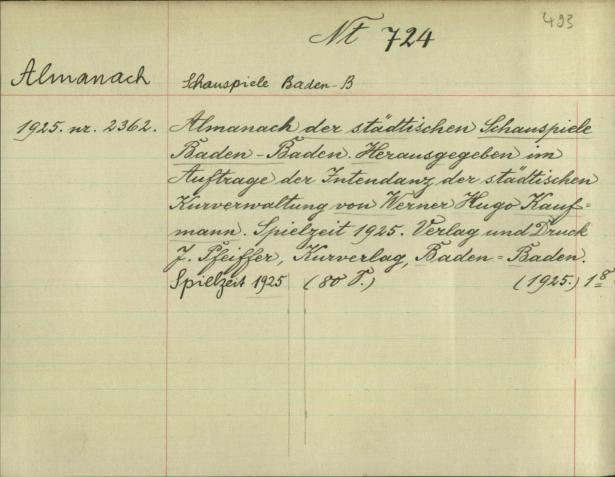 493
Nt 724
Almanach Schauspiele Baden-B
1925. nr. 2362. Almanach der städtischen Schauspiele
Baden-Baden. Herausgegeben im
Auftrage der Intendanz der städtischen
Kurverwaltung von Werner Hugo Kauf=
mann. Spielzeit 1925. Verlag und Druck
J. Pfeiffer, Kurverlag, Baden=Baden.
Spielzeit 1925 (80 S.) (1925.) 18